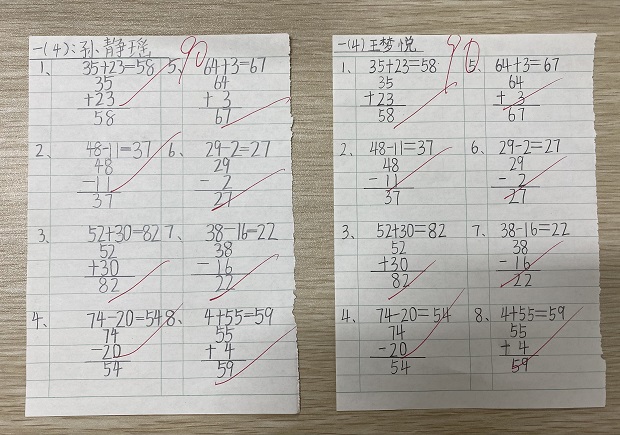 一(4):孙静瑶
90
1、 35+23=58
35
+23
58
5、 64+3=67
64
+ 3
67
2、 48-11=37
48
-11
37
6、 29-2=27
29
- 2
27
3、 52+30=82
52
+30
82
7、 38-16=22
38
-16
22
4、 74-20=54
74
-20
54
8、 4+55=59
55
+ 4
59
一(4)王梦悦
90
1、 35+23=58
35
+23
58
5、 64+3=67
64
+ 3
67
2、 48-11=37
48
-11
37
6、 29-2=27
29
- 2
27
3、 52+30=82
52
+30
82
7、 38-16=22
38
-16
22
4、 74-20=54
74
-20
54
8、 4+55=59
55
+ 4
59